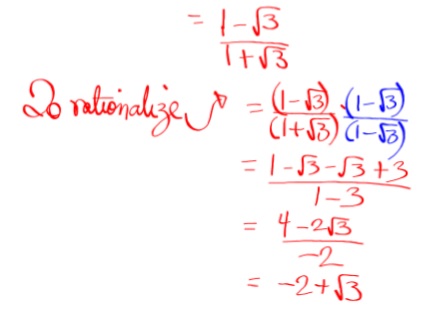 = (1-√3)/(1+√3)
To rationalize = (1-√3)/(1+√3) · (1-√3)/(1-√3)
= (1-√3-√3+3)/(1-3)
= (4-2√3)/(-2)
= -2+√3